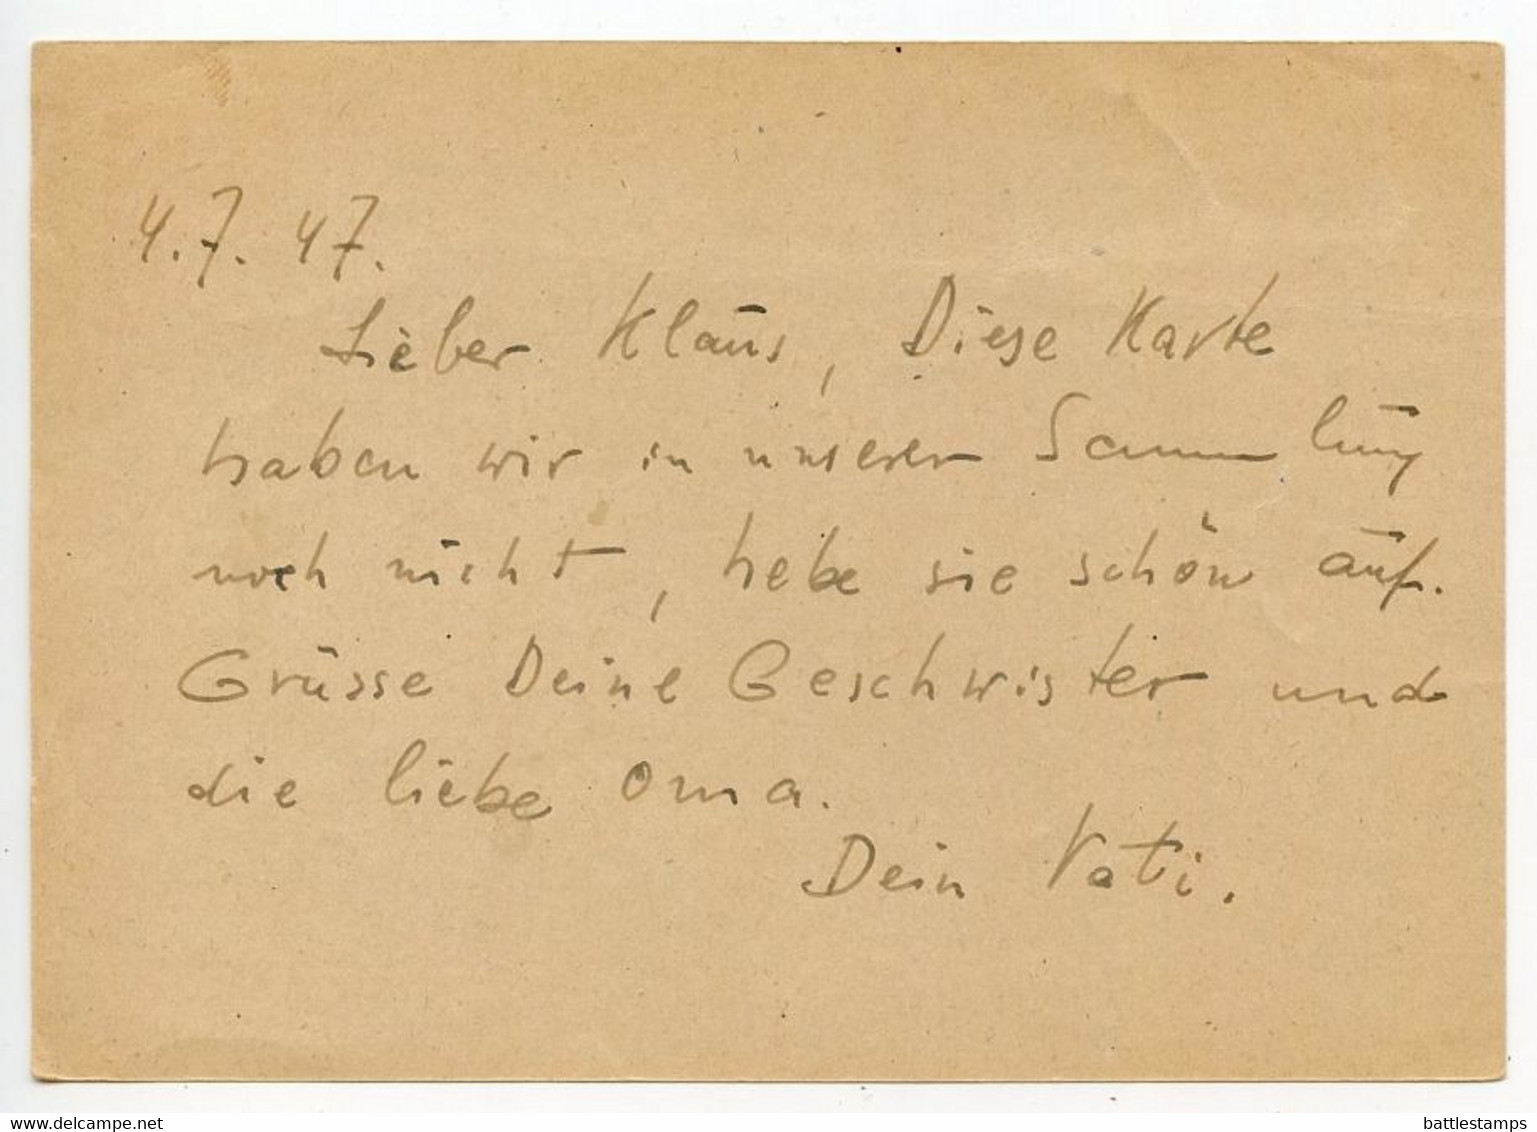 4.7.47.
Lieber Klaus, Diese Karte
haben wir in unserer Sammlung
noch nicht, hebe sie schön auf.
Grüsse Deine Geschwister und
die liebe Oma.
Dein Vati.
www.delcampe.net
battlestamps